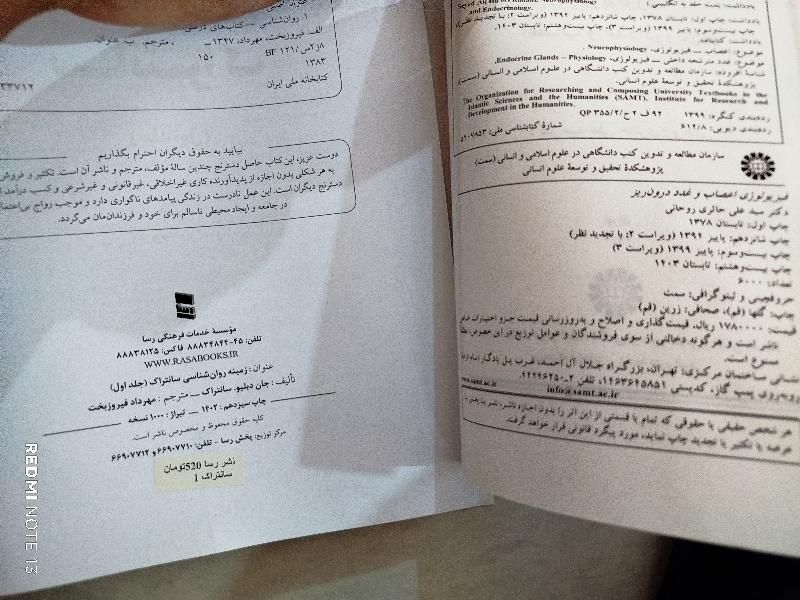 روان‌شناسی -- کتاب‌های درسی.
الف. فیروزبخت، مهرداد، ۱۳۴۷ــ ، مترجم. ب. عنوان
BF ۱۲۱/
۱۵۰
۱۳۸۳
کتابخانه ملی ایران
۳۳۷۱۲
بیایید به حقوق دیگران احترام بگذاریم
دوست عزیز، این کتاب حاصل دسترنج چندین سالهٔ مؤلف، مترجم و ناشر آن است. تکثیر و فروش
به هر شکلی بدون اجازه از پدیدآورنده کاری غیراخلاقی، غیرقانونی و غیرشرعی و کسب درآمد از
دسترنج دیگران است. این عمل نادرست در زندگی پیامدهای ناگواری دارد و موجب رواج بی‌اعتما
در جامعه و ایجاد محیطی ناسالم برای خود و فرزندان‌مان می‌گردد.
مؤسسهٔ خدمات فرهنگی رسا
تلفن: ۴۵-۸۸۸۳۴۸۴۴ فاکس: ۸۸۸۳۸۱۲۵
WWW.RASABOOKS.IR
عنوان: زمینه روان‌شناسی سانتراک (جلد اول)
تألیف: جان دبلیو. سانتراک — مترجم: مهرداد فیروزبخت
چاپ سیزدهم: ۱۴۰۲ — تیراژ: ۱۰۰۰ نسخه
کلیه حقوق محفوظ و مخصوص ناشر است.
مرکز توزیع: پخش رسا - تلفن: ۶۶۹۰۷۷۱۰ و ۶۶۹۰۷۷۱۲
نشر رسا 520تومان
سانتراک 1
and Endocrinology.
یادداشت: چاپ اول: تابستان ۱۳۷۸، چاپ شانزدهم: پاییز ۱۳۹۴ (ویراست ۲: با تجدید نظر)،
چاپ بیست‌وسوم: پاییز ۱۳۹۹ (ویراست ۳)، چاپ بیست‌وهشتم: تابستان ۱۴۰۳.
یادداشت: کتابنامه.
موضوع: اعصاب — فیزیولوژی، Neurophysiology
موضوع: غدد مترشحه داخلی — فیزیولوژی، Endocrine Glands – Physiology.
شناسه افزوده: سازمان مطالعه و تدوین کتب دانشگاهی در علوم اسلامی و انسانی (سمت)،
پژوهشکدهٔ تحقیق و توسعهٔ علوم انسانی.
The Organization for Researching and Composing University Textbooks in the
Islamic Sciences and the Humanities (SAMT), Institute for Research and
Development in the Humanities.
رده‌بندی کنگره: ۱۳۹۹ ۹۲ف ۲ح/۳۵۵/۲ QP
رده‌بندی دیویی: ۶۱۲/۸ شمارهٔ کتابشناسی ملی:
سازمان مطالعه و تدوین کتب دانشگاهی در علوم اسلامی و انسانی (سمت)
پژوهشکدهٔ تحقیق و توسعهٔ علوم انسانی
فیزیولوژی اعصاب و غدد درون‌ریز
دکتر سید علی حائری روحانی
چاپ اول: تابستان ۱۳۷۸
چاپ شانزدهم: پاییز ۱۳۹۴ (ویراست ۲: با تجدید نظر)
چاپ بیست‌وسوم: پاییز ۱۳۹۹ (ویراست ۳)
چاپ بیست‌وهشتم: تابستان ۱۴۰۳
تعداد: ۶۰۰۰
حروفچینی و لیتوگرافی: سمت
چاپ: گلها (قم)، صحافی: زرین (قم)
قیمت: ۱۷۸۰۰۰۰ ریال. قیمت‌گذاری و اصلاح و به‌روزرسانی قیمت جزو اختیارات
ناشر است و هرگونه دخالتی از سوی فروشندگان و عوامل توزیع در این خصوص
ممنوع است.
نشانی ساختمان مرکزی: تهران، بزرگراه جلال آل احمد، غرب پل یادگار امام
روبه‌روی پمپ گاز، کدپستی ۱۴۶۳۶۴۵۸۵۱، تلفن ۲-۴۴۲۴۶۲۵۰.
info@samt.ac.ir
هر شخص حقیقی یا حقوقی که تمام یا قسمتی از این اثر را بدون اجازه ناشر، نشر یا پخش یا
عرضه یا تکثیر یا تجدید چاپ نماید، مورد پیگرد قانونی قرار خواهد گرفت.
REDMI NOTE 13